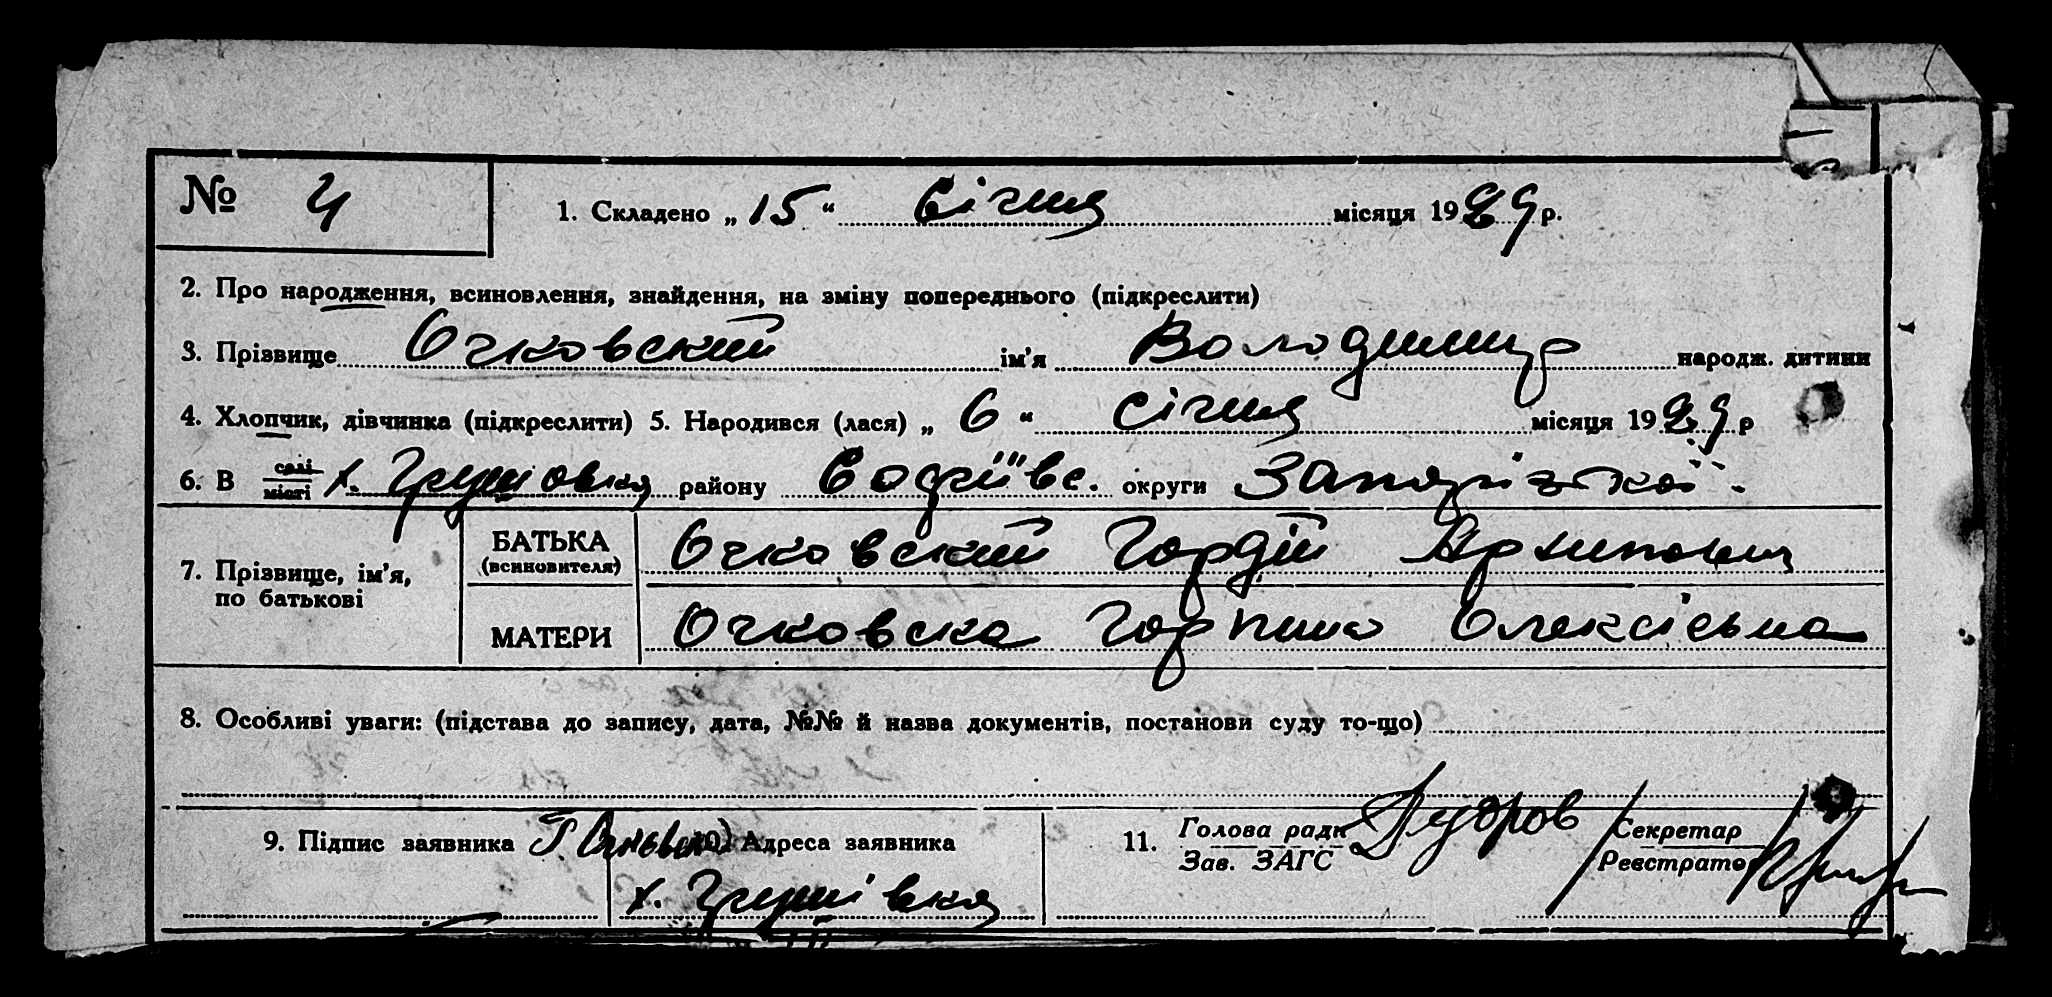 № 4
1. Складено „ 15 “ Січня місяця 1929 р.
2. Про народження, всиновлення, знайдення, на зміну попереднього (підкреслити)
3. Прізвище Очковский ім’я Володимир народж. дитини
4. Хлопчик, дівчинка (підкреслити) 5. Народився (лася) „ 6 “ січня місяця 1929 р
6. В селі місті х. Грушовка району Софіївс. округи Запорізької.
7. Прізвище, ім’я, по батькові
БАТЬКА (всиновителя) Очковский Гордій Архипович
МАТЕРИ Очковска Горпина Олексієвна
8. Особливі уваги: (підстава до запису, дата, №№ й назва документів, постанови суду то-що)
9. Підпис заявника 10) Адреса заявника
х. Грушівка
11. Голова ради Зав. ЗАГС
Секретар Реєстратор